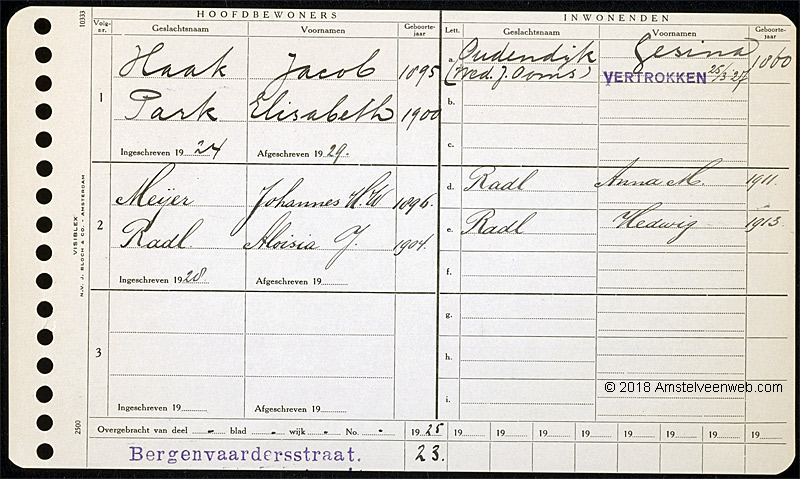 10333
HOOFDBEWONERS
INWONENDEN
Volg-nr. Geslachtsnaam Voornamen Geboorte-jaar Lett. Geslachtsnaam Voornamen Geboorte-jaar
1
Haak Jacob 1895
Park Elisabeth 1900
Ingeschreven 1924 Afgeschreven 1929.
a. Oudendijk Gesina 1860
(Wed. J. Ooms) VERTROKKEN 25/3 27
b.
c.
2
Meijer Johannes H.W 1896.
Radl. Aloisia J. 1904.
Ingeschreven 1928 Afgeschreven 19
d. Radl Anna M. 1911.
e. Radl Hedwig 1913
f.
3
Ingeschreven 19 Afgeschreven 19
g.
h.
i.
© 2018 Amstelveenweb.com
Overgebracht van deel - blad - wijk - No. - 1925 19 19 19 19 19 19 19 19
Bergenvaardersstraat. 23.
VISIBLEX
N.V. J. BLOCH & CO. - AMSTERDAM
2500